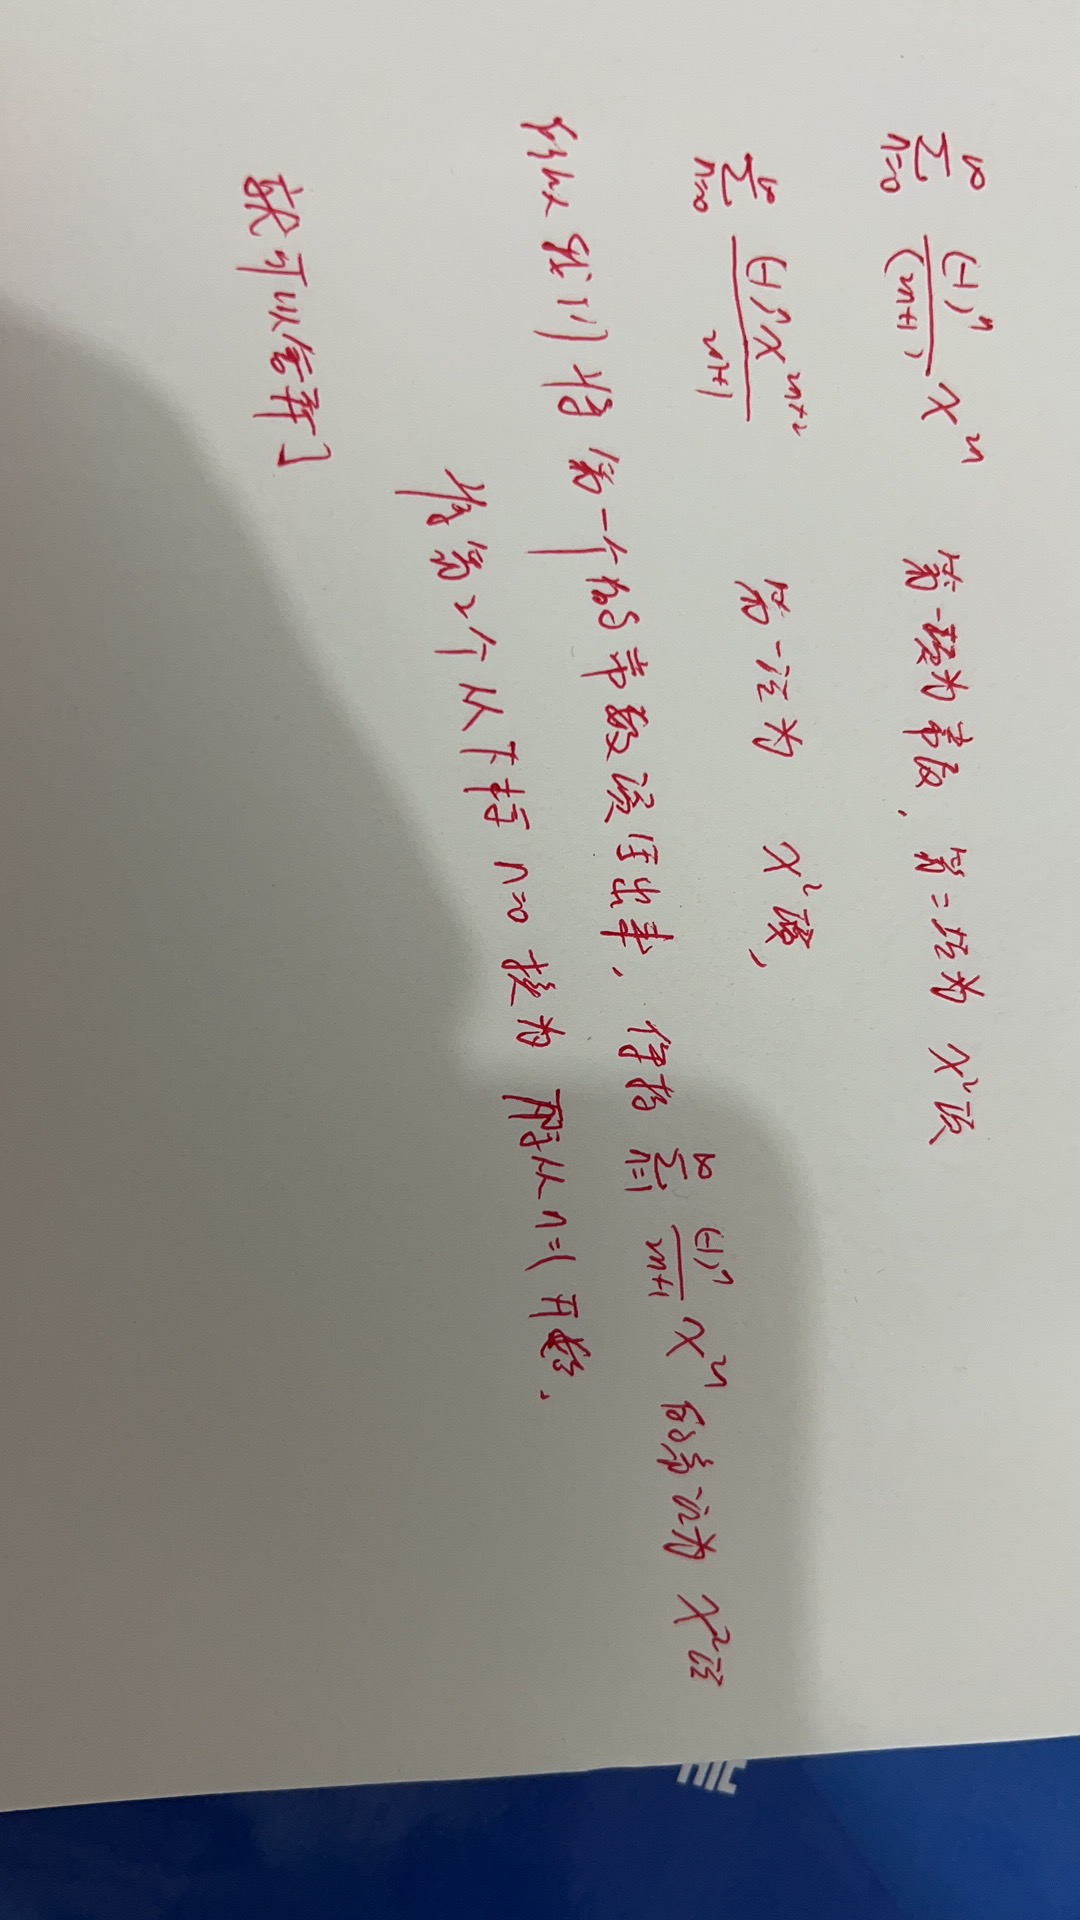 ∞ ∑ n=0 (-1)ⁿ/(2n+1) x²ⁿ 第一项为常数,第二项为 x²项
∞ ∑ n=0 (-1)ⁿ x²ⁿ⁺²/2n+1 第一项为 x²项,
所以我们将第一个的常数项写出来,使得 ∞ ∑ n=1 (-1)ⁿ/2n+1 x²ⁿ 的第一项为 x²项
将第2个从下标 n=0 换为 n=1 开始.
就可以合并了